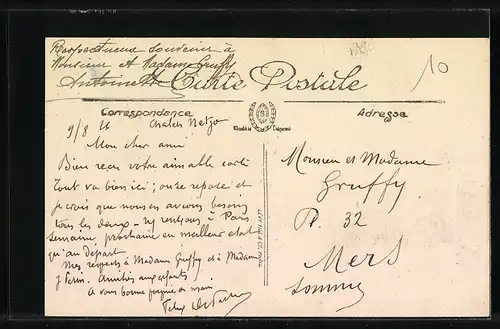 Respectueux souvenir à
Monsieur et Madame Gruffy
Antoinette
Carte Postale
10
Correspondance
Adresse
9/8 26
Mon cher ami
Bien reçu votre aimable carte
Tout va bien ici ; on se repose et
je crois que nous en avions besoin
tous les deux - ns rentrons à Paris
semaine prochaine en meilleur état
qu'au départ
Mes respects à Madame Gruffy et à Madame
Amitiés aux enfants
A vous bonne poignée de main
Monsieur et Madame
Gruffy
32
Mers
Somme